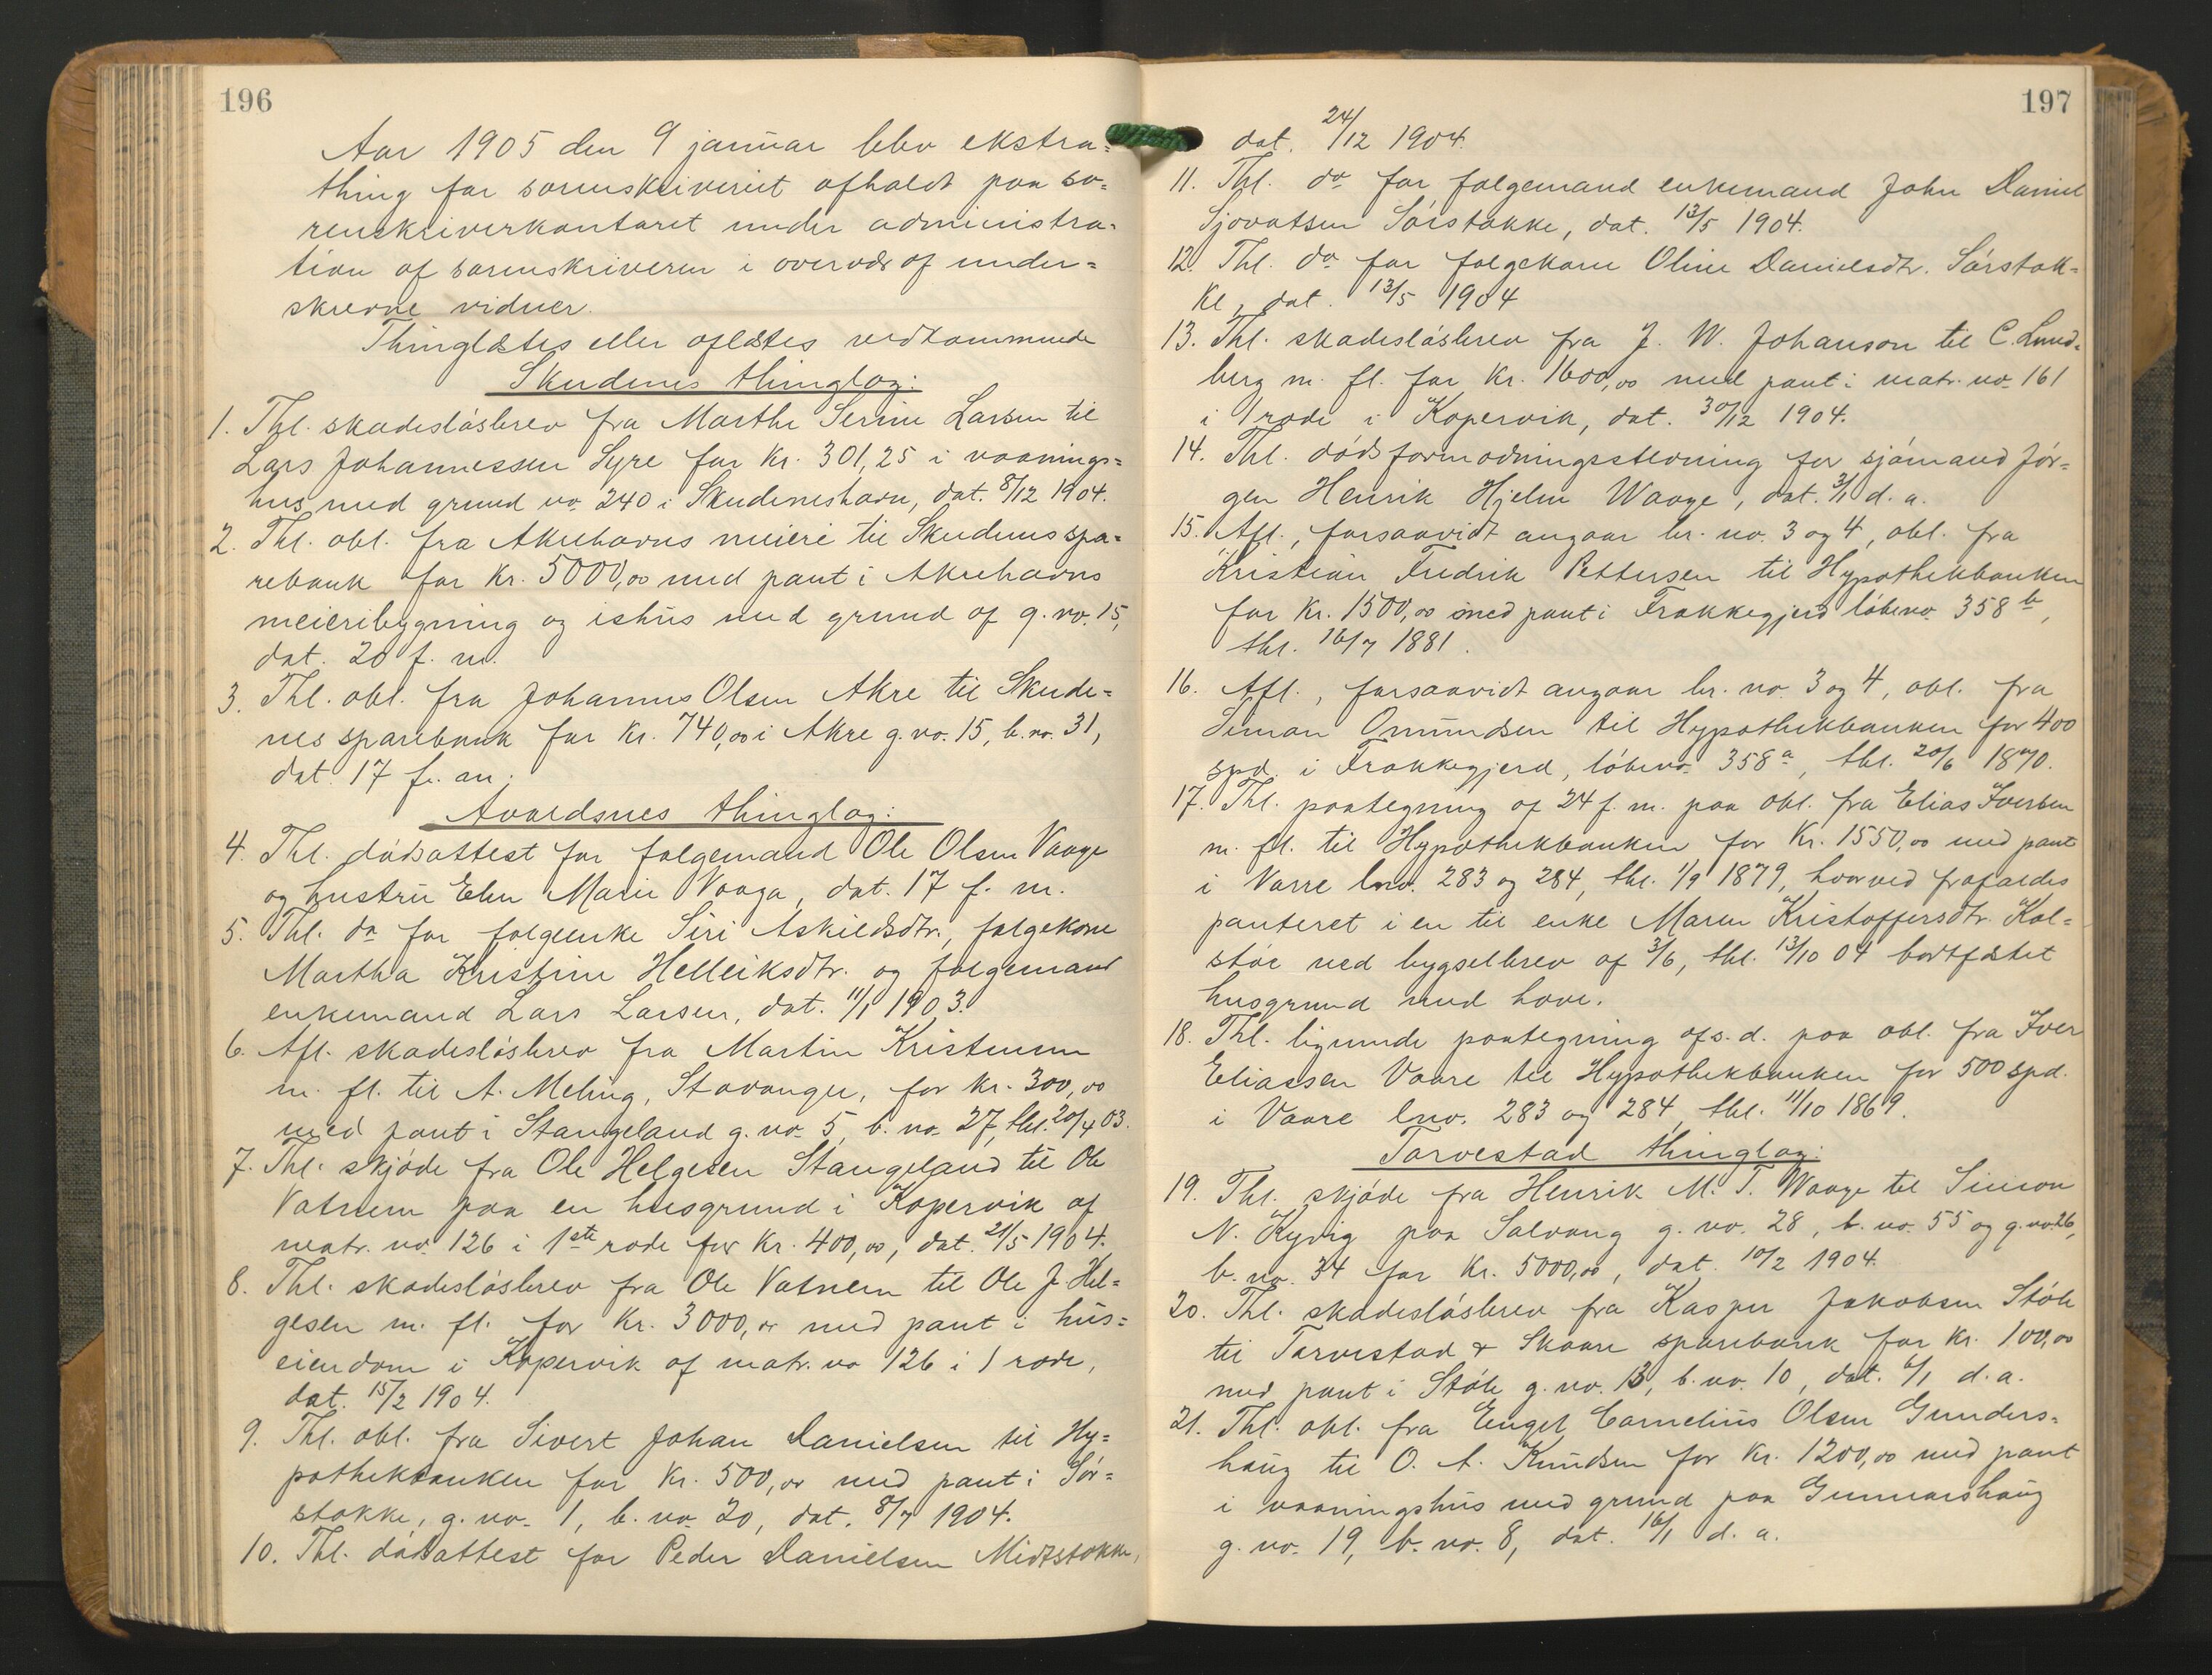 196
Aar 1905 den 9 januar blev ekstra=
thing for sorenskriveriet afholdt paa so=
renskriverkontoret under administra=
tion af sorenskriveren i overvær af under=
skrevne vidner.
Thinglæstes eller aflæstes vedkommende
Skudenes thinglag:
1. Thl. skadesløsbrev fra Marthe Serine Larsen til
Lars Johannessen Syre for Kr. 301,25 i vaanings=
hus med grund no. 240 i Skudeneshavn, dat. 8/12 1904.
2. Thl. obl. fra Akrehavns meieri til Skudenes spa=
rebank for Kr. 5000,00 med pant i Akrehavns
meieribygning og ishus med grund af g. no. 15,
dat. 20 f. m.
3. Thl. obl. fra Johannes Olsen Akre til Skude=
nes sparebank for Kr. 740,00 i Akre g. no. 15, b. no. 31,
dat. 17 f. m.
Avaldsnes thinglag:
4. Thl. dødsattest for folgemand Ole Olsen Vaage
og hustru Elen Marie Vaaga, dat. 17 f. m.
5. Thl. do for folgeenke Siri Askildsdtr., folgekone
Martha Kristine Helleiksdtr. og folgemand
enkemand Lars Larsen, dat. 11/1 1903.
6. Afl. skadesløsbrev fra Martin Kristensen
m. fl. til A. Meling, Stavanger, for kr. 300,00
med pant i Stangeland g. no. 5, b. no. 27, thl. 20/4 03.
7. Thl. skjøde fra Ole Helgesen Stangeland til Ole
Vatnem paa en husgrund i Kopervik af
matr. no. 126 i 1ste rode for Kr. 400,00, dat. 21/5 1904.
8. Thl. skadesløsbrev fra Ole Vatnem til Ole J. Hel=
gesen m. fl. for Kr. 3000,00 med pant i hus=
eiendom i Kopervik af matr. no 126 i 1 rode,
dat. 15/2 1904.
9. Thl. obl. fra Sivert Johan Danielsen til Hy=
pothekbanken for Kr. 500,00 med pant i Sør=
stokke, g. no. 1, b. no. 20, dat. 8/7 1904.
10. Thl. dødsattest for Peder Danielsen Midtstokke,
197
dat. 24/12 1904.
11. Thl. do for folgemand enkemand John Daniel
Sjovatsen Sørstokke, dat. 13/5 1904.
12. Thl. do for folgekone Oline Danielsdtr. Sørstok=
ke, dat. 13/5 1904
13. Thl. skadesløsbrev fra J. W. Johanson til C. Lund=
berg m. fl. for Kr. 1600,00 med pant i matr. no. 161
i 1 rode i Kopervik, dat. 30/12 1904.
14. Thl. dødsformodningsstevning for sjømand Jør=
gen Henrik Hjelm Waage, dat. 3/1 d. a.
15. Afl., forsaavidt angaar br. no. 3 og 4, obl. fra
Kristian Fredrik Pettersen til Hypothekbanken
for Kr. 1500,00 med pant i Frakkegjerd løbeno. 358 b,
thl. 16/7 1881.
16. Afl., forsaavidt angaar br. no. 3 og 4, obl. fra
Simon Omundsen til Hypothekbanken for 400
spd. i Frakkegjerd, løbeno. 358 a, thl. 20/6 1870.
17. Thl. paategning af 24 f. m. paa obl. fra Elias Iversen
m. fl. til Hypothekbanken for Kr. 1550,00 med pant
i Varre lno. 283 og 284, thl. 1/9 1879, hvorved frafaldes
panteret i en til enke Maren Kristoffersdtr. Kol=
støe ved bygselbrev af 3/6, thl. 13/10 04 bortfæstet
husgrund med have.
18. Thl. lignende paategning af s. d. paa obl. fra Iver
Eliassen Vaare til Hypothekbanken for 500 spd.
i Vaare lno. 283 og 284, thl. 11/10 1869.
Torvestad thinglag:
19. Thl. skjøde fra Henrik M. T. Waage til Simon
N. Kyvig paa Salvang g. no. 28, b. no. 55 og g. no 26,
b. no. 34 for Kr. 5000,00, dat. 10/2 1904.
20. Thl. skadesløsbrev fra Kasper Jakobsen Støle
til Torvestad & Skaare sparebank for kr. 100,00
med pant i Støle g. no. 13, b. no. 10, dat. 6/1 d. a.
21. Thl. obl. fra Engel Cornelius Olsen Gunders=
haug til O. A. Knudsen for Kr. 1200,00 med pant
i vaaningshus med grund paa Gunnarshaug
g. no. 19, b. no. 8, dat. 16/1 d. a.